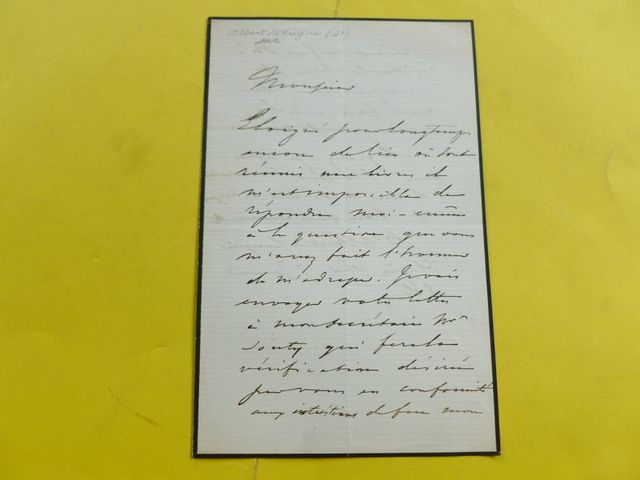 Albert de Luynes
duc
Monsieur
Eloigné pour longtemps
encore du lieu où sont
réunis mes livres il
m'est impossible de
répondre moi-même
à la question que vous
m'avez fait l'honneur
de m'adresser. Je vais
envoyer votre lettre
à mon secrétaire Mr
qui fera la
vérification désirée
par vous en conformité
aux intentions de feu mon